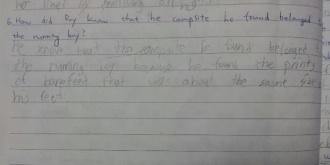 her
6. How did Roy know that he campsite he found belonged
the running boy?
He know that the campsite he found belonged
the running boy because he found the prints
of barefeet that was about the same size
his feet